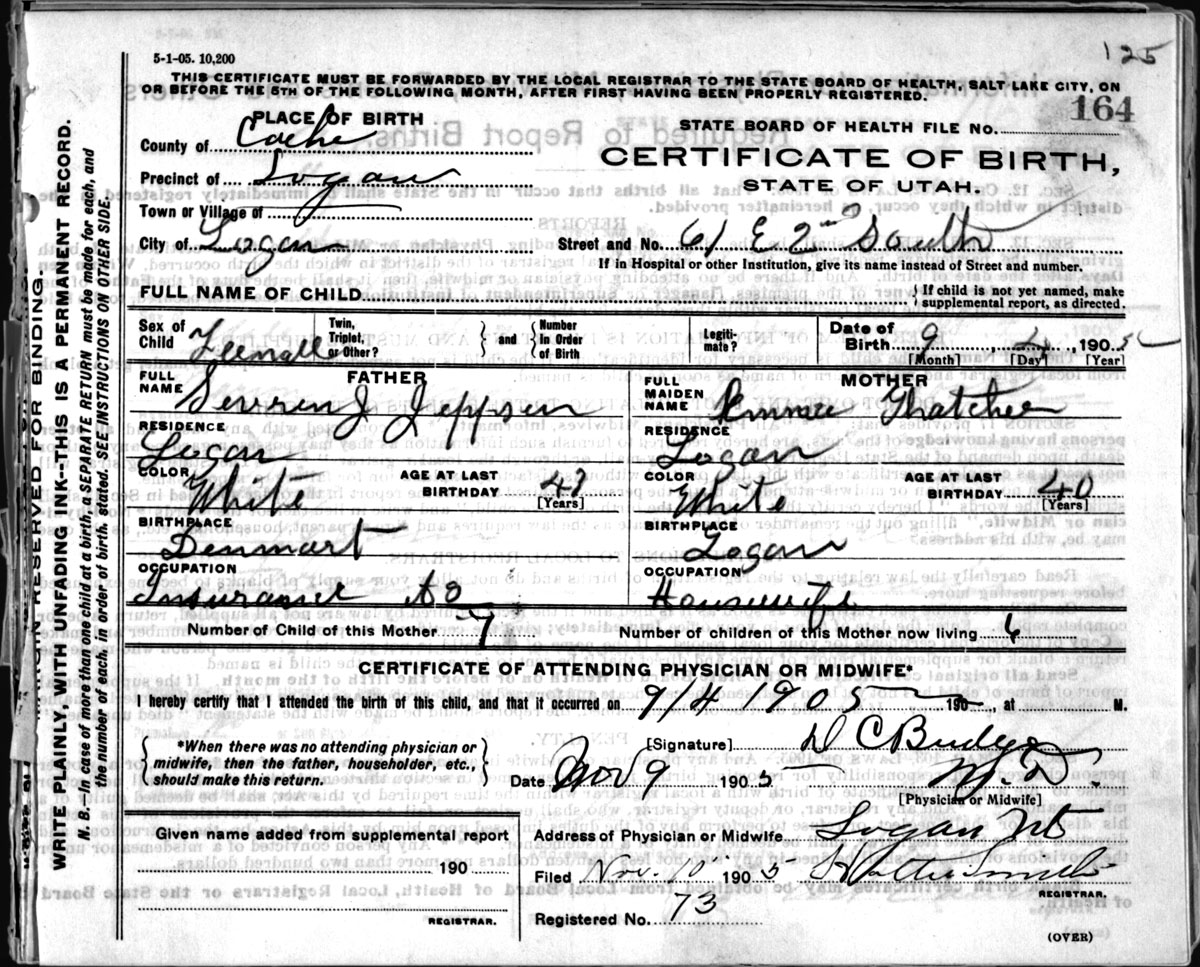 5-1-05. 10,200
125
THIS CERTIFICATE MUST BE FORWARDED BY THE LOCAL REGISTRAR TO THE STATE BOARD OF HEALTH, SALT LAKE CITY, ON
OR BEFORE THE 5TH OF THE FOLLOWING MONTH, AFTER FIRST HAVING BEEN PROPERLY REGISTERED.
164
PLACE OF BIRTH
STATE BOARD OF HEALTH FILE NO.
County of Cache
CERTIFICATE OF BIRTH,
Precinct of Logan
STATE OF UTAH.
Town or Village of
City of Logan
Street and No. 61 E 2nd South
If in Hospital or other Institution, give its name instead of Street and number.
FULL NAME OF CHILD
{ If child is not yet named, make
supplemental report, as directed.
Sex of Child Female
Twin, Triplet, or Other?
{ and }
Number in Order of Birth
Legitimate?
Date of Birth 9 4, 1905
[Month] [Day] [Year]
FATHER
FULL NAME Serren J Jeppsen
MOTHER
FULL MAIDEN NAME Emmee Thatcher
RESIDENCE
Logan
RESIDENCE
Logan
COLOR White
AGE AT LAST BIRTHDAY
[Years]
COLOR White
AGE AT LAST BIRTHDAY 40
[Years]
BIRTHPLACE
Denmark
BIRTHPLACE
Logan
OCCUPATION
Insurance
OCCUPATION
Housewife
Number of Child of this Mother 7
Number of children of this Mother now living 6
CERTIFICATE OF ATTENDING PHYSICIAN OR MIDWIFE*
I hereby certify that I attended the birth of this child, and that it occurred on 9/4 1905 190 , at M.
{ *When there was no attending physician or
midwife, then the father, householder, etc.,
should make this return. }
[Signature] D C Budge
Date Nov 9 1905
M.D.
[Physician or Midwife]
Given name added from supplemental report
190
REGISTRAR.
Address of Physician or Midwife Logan Ut
Filed Nov. 10 1905
REGISTRAR.
Registered No. 73
(OVER)
MARGIN RESERVED FOR BINDING.
WRITE PLAINLY, WITH UNFADING INK--THIS IS A PERMANENT RECORD.
N. B. In case of more than one child at a birth a SEPARATE RETURN must be made for each, and
the number of each, in order of birth, stated. SEE INSTRUCTIONS ON OTHER SIDE.